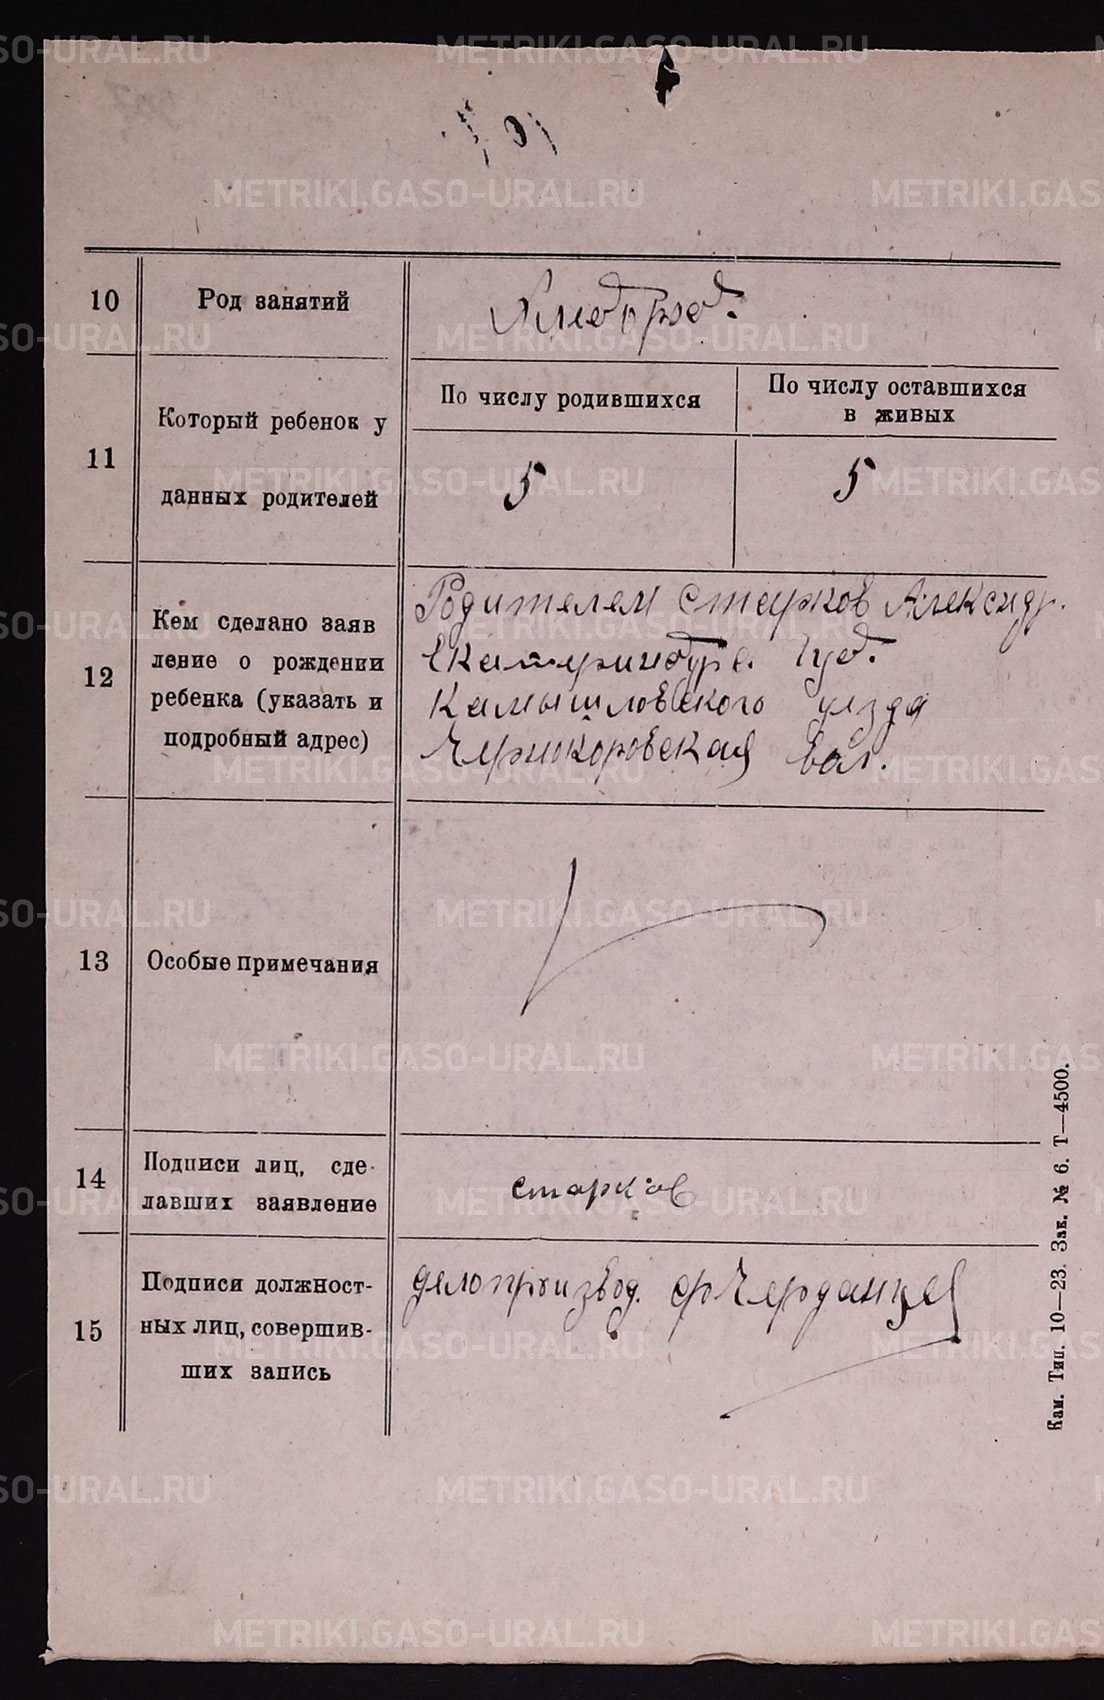 10
Род занятий
Хлебороб.
11
Который ребенок у
данных родителей
По числу родившихся
По числу оставшихся
в живых
5
5
12
Кем сделано заяв
ление о рождении
ребенка (указать и
подробный адрес)
Родителем Старков Александр.
Екатеринбург. Губ.
Камышловского уезда
Чернокоровская вол.
13
Особые примечания
14
Подписи лиц, сде-
лавших заявление
Старков
15
Подписи должност-
ных лиц, совершив-
ших запись
делопроизвод. Черданцев
Кам. Тип. 10—23. Зак. № 6. Т—4500.
METRIKI.GASO-URAL.RU